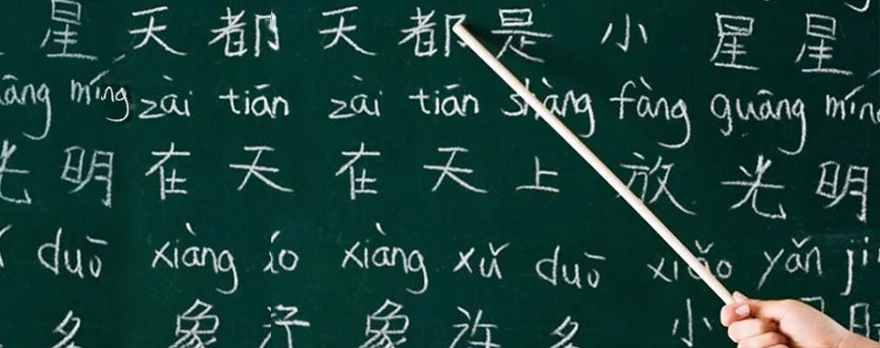 星 天 都 天 都 是 小 星 星
āng míng zài tiān zài tiān shàng fàng guāng mín
光 明 在 天 在 天 上 放 光 明
duō xiàng xiàng xǔ duō xiǎo yǎn
多 象 象 许 多 小